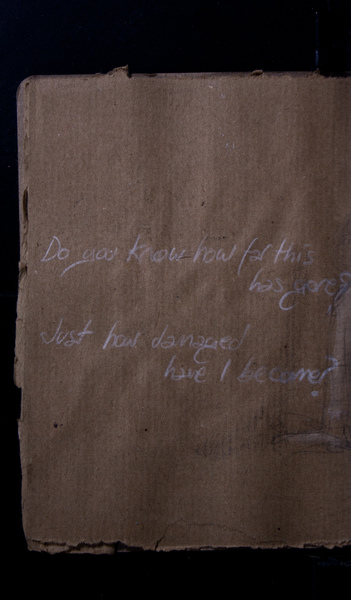 Do you know how far this
has gone?
Just how damaged
have I become?